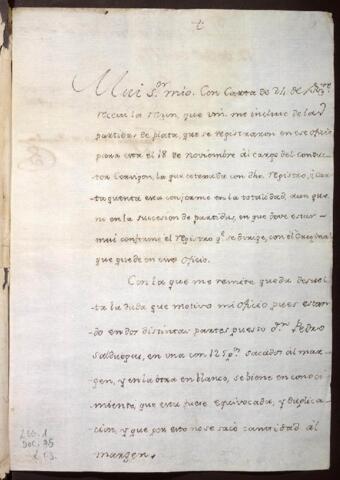 Mui s.or mio. Con Carta de 24 de
reciui la rason, que Vm. me incluie de las
partidas de plata, que se registraron en ese oficio
para esta el 18 de Noviembre al cargo del conduc
tor la que cotexada con dho. registro, y
quenta esta conforme en la totalidad, aun que
no en la succesion de partidas, en que deve estar
mui conforme el registro q.e se dirige, con el Original
que quede en ese oficio.
Con la que me remite queda desuel
ta la duda que motivo mi oficio pues estan
do en dos distintas partes puesto Pedro
en una con 125 p.s sacados al mar
gen, y en la otra en blanco, se viene en conoci
miento, que esta fuese equivocada, y duplica
cion, y que por esto no se sacó cantidad al
margen.
LEG. 1
DOC. 75